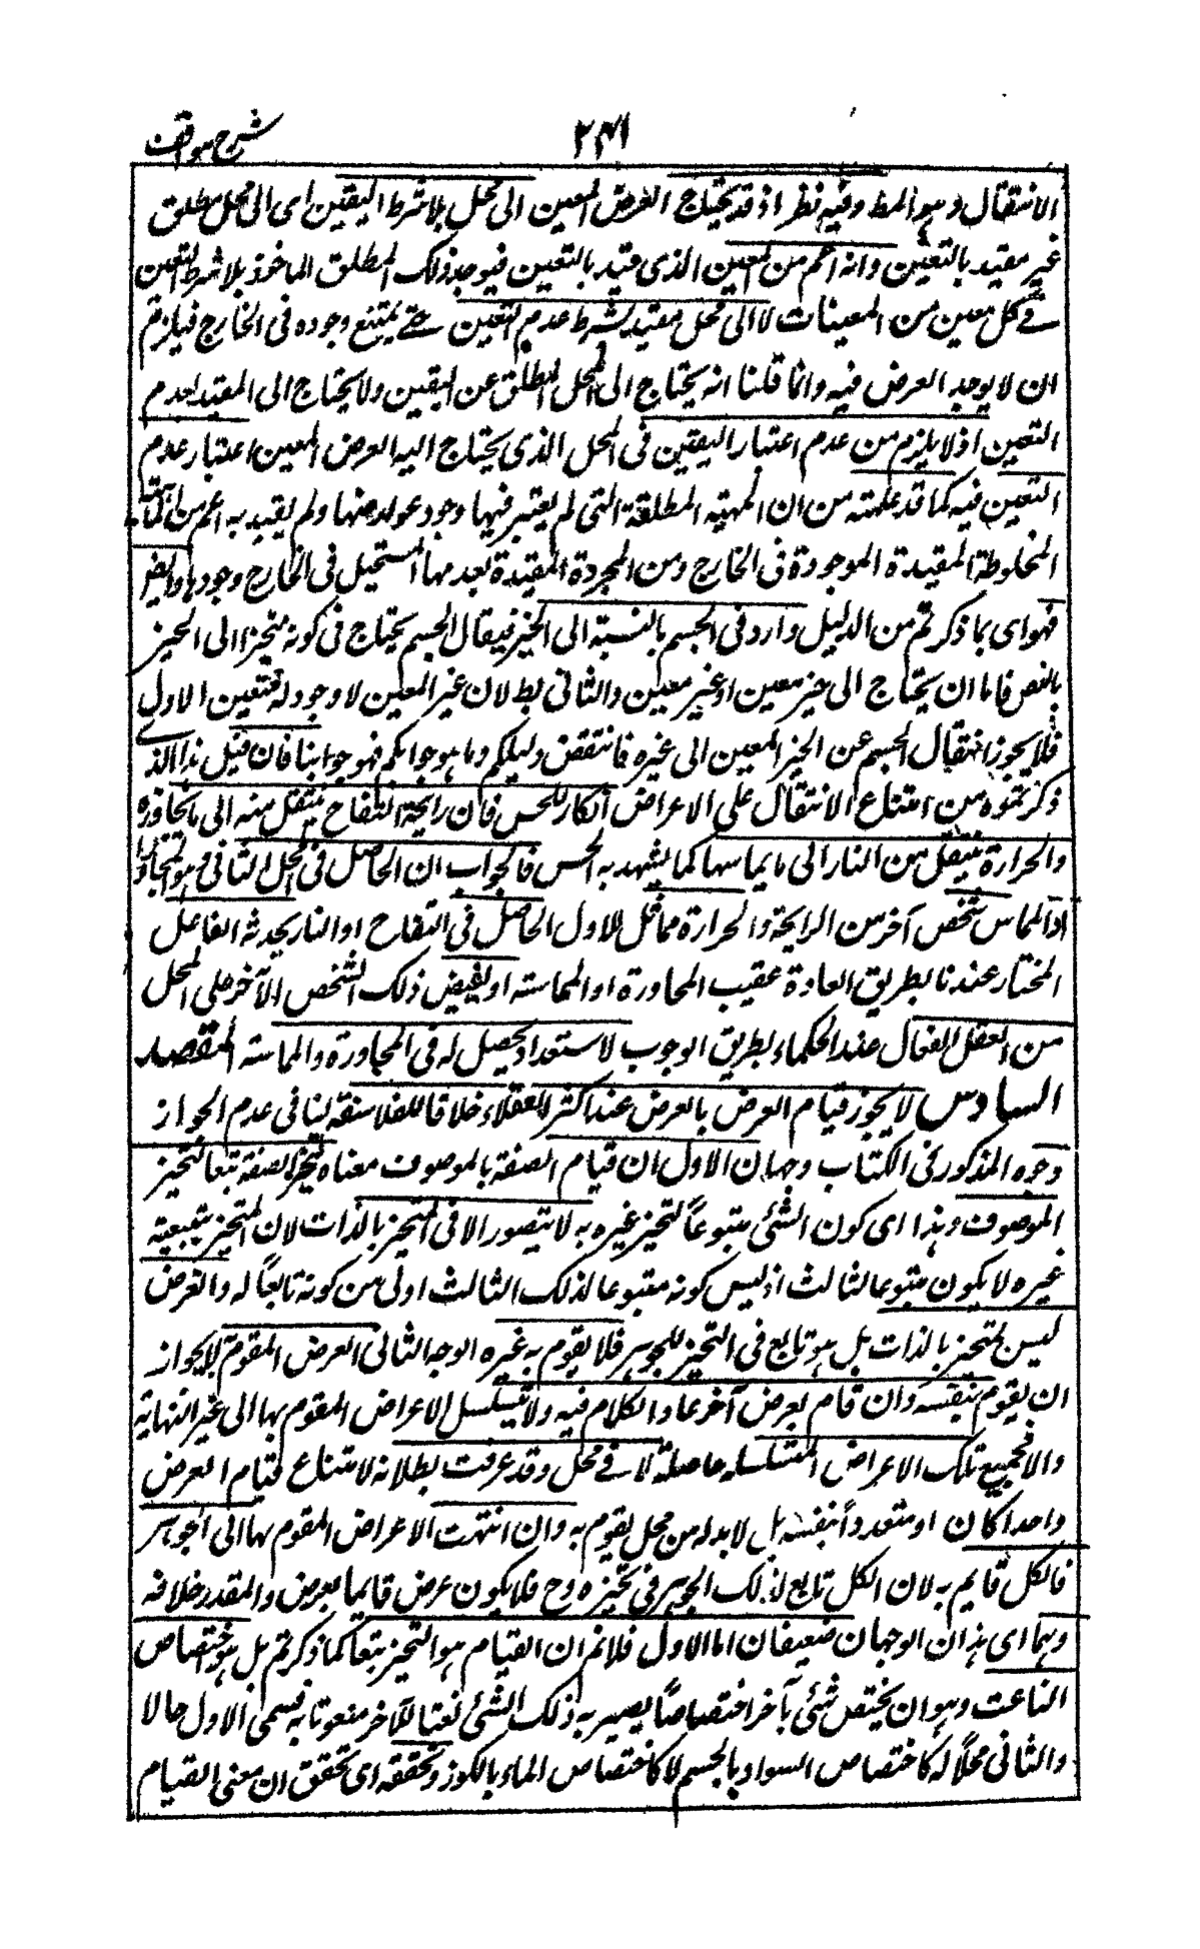 شرح مواقف
٢٤١
الانتقال وهو المط وفيه نظر اذ قد يحتاج العرض المعين الى محل بلا شرط التعين اى الى محل مطلق
غير مقيد بالتعين وانه اعم من المعين الذى قيد بالتعين فيوجد ذلك المطلق الماخوذ بلا شرط التعين
فى كل معين من المعينات لا الى محل مقيد بشرط عدم التعين حتى يمتنع وجوده فى الخارج فيلزم
ان لا يوجد العرض فيه وانما قلنا انه يحتاج الى المحل المطلق عن التعين ولا يحتاج الى المقيد بعدم
التعين اذ لا يلزم من عدم اعتبار التعين فى المحل الذى يحتاج اليه العرض المعين اعتبار عدم
التعين فيه كما قد علمته من ان المهية المطلقة التى لم يعتبر فيها وجود عوارضها ولم يقيد به اعم من الماهية
المخلوطة المقيدة الموجودة فى الخارج ومن المجردة المقيدة بعدمها المستحيل فى الخارج وجودها وايض
فهو اى بما ذكرتم من الدليل وارد فى الجسم بالنسبة الى الحيز فيقال الجسم يحتاج فى كونه متحيزا الى الحيز
بالنص فاما ان يحتاج الى حيز معين او غير معين والثانى بط لان غير المعين لا وجود له فتعين الاول
فلا يجوز انتقال الجسم عن الحيز المعين الى غيره فانتقض دليلكم وما هو جوابكم فهو جوابنا فان قيل هذا الذى
ذكرتموه من امتناع الانتقال على الاعراض انكار للحس فان رايحة التفاح ينتقل منه الى ما يجاوره
والحرارة ينتقل من النار الى ما يماسها كما يشهد به الحس فالجواب ان الحاصل فى المحل الثانى وهو المجاور
او المماس شخص آخر من الرايحة والحرارة مماثل للاول الحاصل فى التفاح او النار يحدثه الفاعل
المختار عندنا بطريق العادة عقيب المجاورة او المماسة او يفيض ذلك الشخص الآخر على المحل
من العقل الفعال عند الحكماء بطريق الوجوب لاستعداد يحصل له فى المجاورة والمماسة المقصد
السادس لا يجوز قيام العرض بالعرض عند اكثر العقلاء خلافا للفلاسفة لنا فى عدم الجواز
وجوه المذكور فى الكتاب وجهان الاول ان قيام الصفة بالموصوف معناه تحيز الصفة تبعا لتحيز
الموصوف وهذا اى كون الشئ متبوعاً لتحيز غيره به لا يتصور الا فى المتحيز بالذات لان المتحيز بتبعية
غيره لا يكون متبوعا لثالث اذ ليس كونه متبوعا لذلك الثالث اولى من كونه تابعاً له والعرض
ليس بمتحيز بالذات بل هو تابع فى التحيز للجوهر فلا يقوم به غيره الوجه الثانى العرض المقوم لا يجوز
ان يقوم بنفسه وان قام بعرض آخر عاد الكلام فيه ولا تتسلسل الاعراض المقوم بها الى غير النهاية
والا فجميع تلك الاعراض المتسلسلة حاصلة لا فى محل وقد عرفت بطلانه لامتناع قيام العرض
واحدا كان او متعدداً بنفسه بل لا بد له من محل يقوم به وان انتهت الاعراض المقوم بها الى الجوهر
فالكل قايم به لان الكل تابع لذلك الجوهر فى تحيزه وح فلا يكون عرض قايما بعرض والمقدر خلافه
وهما اى هذان الوجهان ضعيفان اما الاول فلانم ان القيام هو التحيز تبعا كما ذكرتم بل هو اختصاص
الناعت وهو ان يختص شئى بآخر اختصاصاً يصير به ذلك الشئى نعتا للآخر منعوتا به فيسمى الاول حالا
والثانى محلاً له كاختصاص السواد بالجسم لا كاختصاص الماء بالكوز وتحققه اى تحقق ان معنى القيام